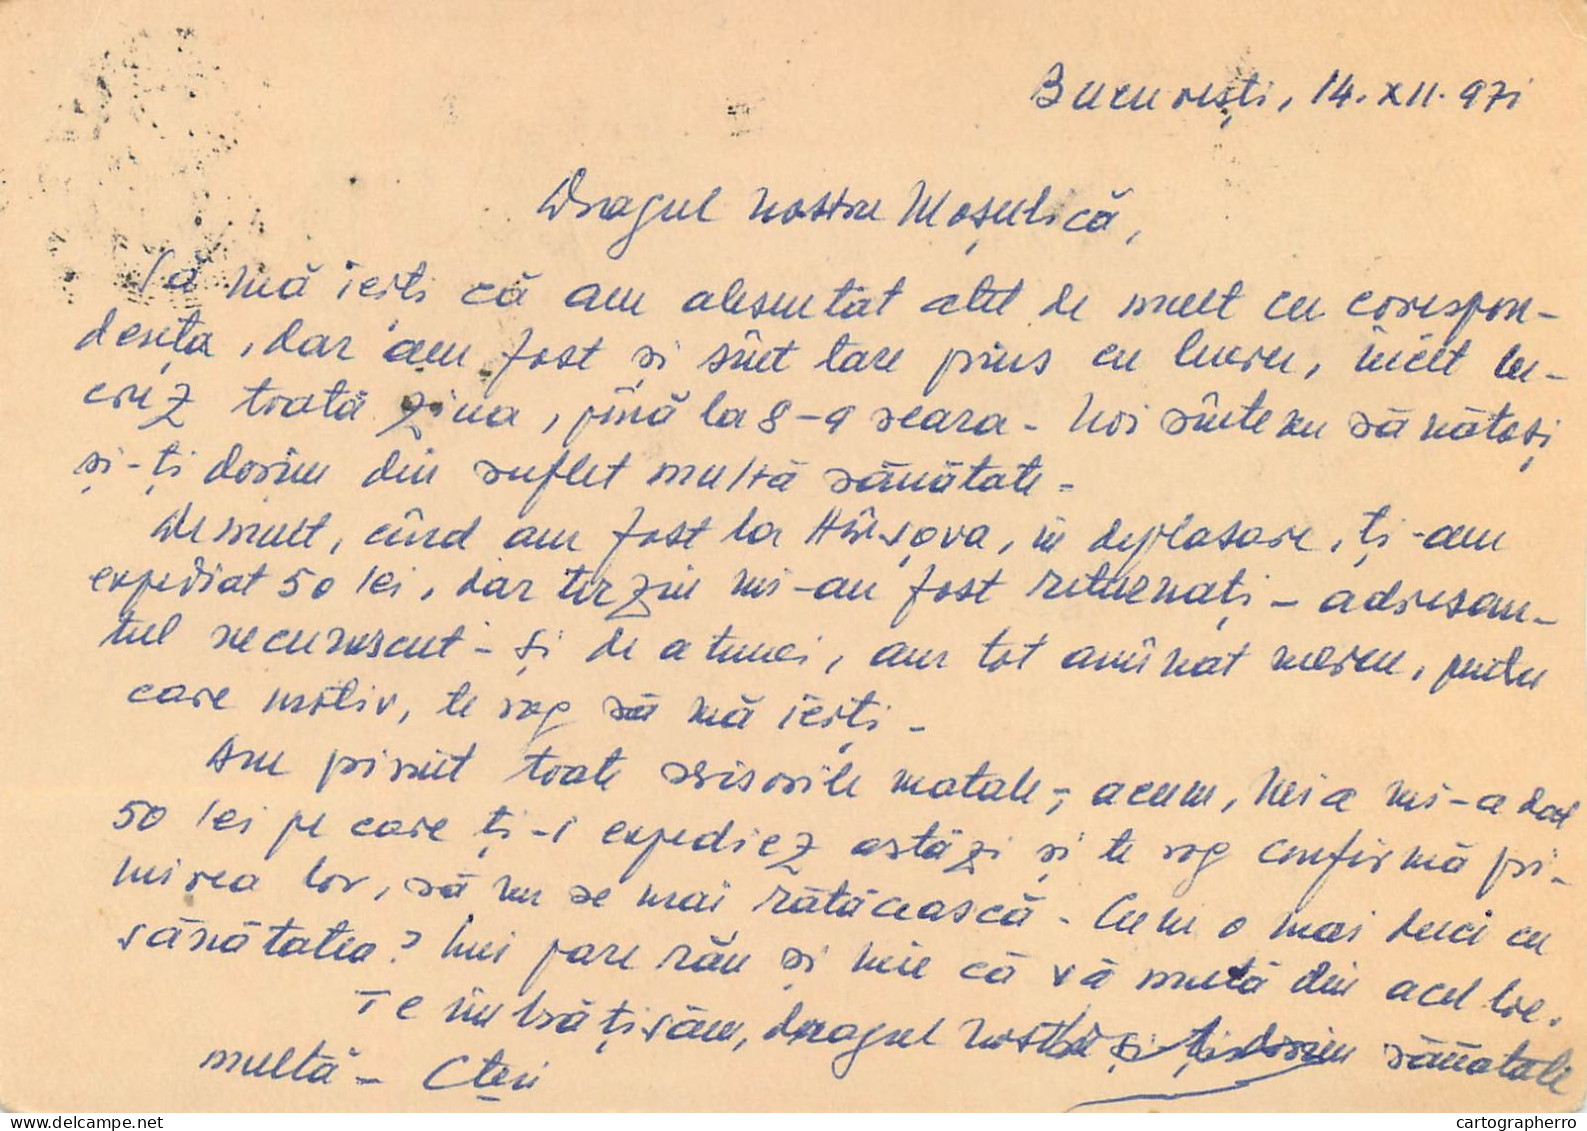 București, 14.XII.971
Dragul nostru Moșulică,
Să mă ierți că am absentat atît de mult cu corespon-
dența, dar am fost și sînt tare prins cu lucru, încît lu-
crez toată ziua, pînă la 8-9 seara - Noi sîntem sănătoși
și-ți dorim din suflet multă sănătate -
De mult, cînd am fost la Hîrșova, în deplasare, ți-am
expediat 50 lei, dar tîrziu mi-au fost returnați - adresan-
tul necunoscut - Și de atunci, am tot amînat mereu, pentru
care motiv, te rog să mă ierți -
Am primit toate scrisorile matale, acum, mi-a dat
50 lei pe care ți-i expediez astăzi și te rog confirmă pri-
mirea lor, să nu se mai rătăcească - Cum o mai duci cu
sănătatea? Îmi pare rău și mie că vă mută din acel loc.
Te îmbrățișăm, dragul nostru și ți dorim sănătate
multă -
cartographerro